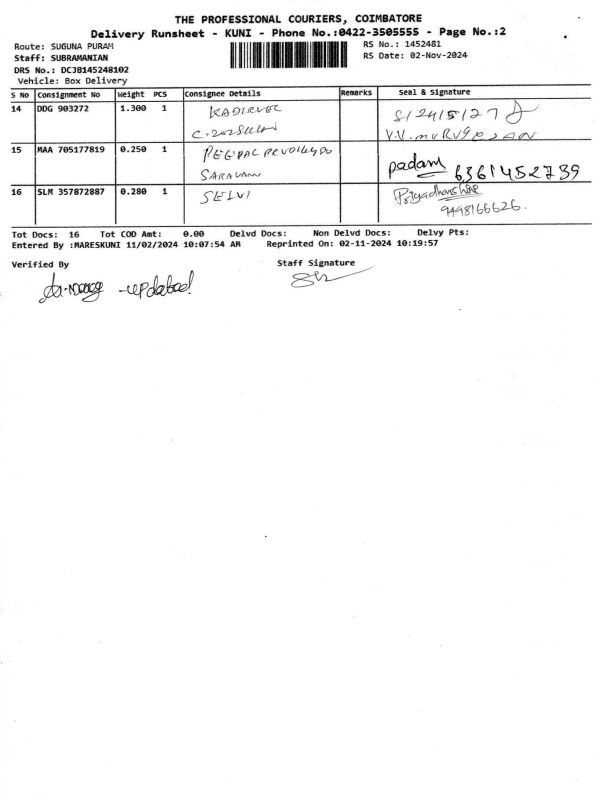 THE PROFESSIONAL COURIERS, COIMBATORE
Delivery Runsheet - KUNI - Phone No.:0422-3505555 - Page No.:2
Route: SUGUNA PURAM
RS No.: 1452481
Staff: SUBRAMANIAN
RS Date: 02-Nov-2024
DRS No.: DCJB145248102
Vehicle: Box Delivery
S No Consignment No Weight PCS Consignee Details Remarks Seal & Signature
14 DDG 903272 1.300 1 KADIRVEL
15 MAA 705177819 0.250 1
SARAVANAN
padam 6361452739
16 SLM 357872887 0.280 1 SELVI Priyadharshini
9498166626.
Tot Docs: 16 Tot COD Amt: 0.00 Delvd Docs: Non Delvd Docs: Delvy Pts:
Entered By :MARESKUNI 11/02/2024 10:07:54 AM Reprinted On: 02-11-2024 10:19:57
Verified By
Staff Signature
-updated!